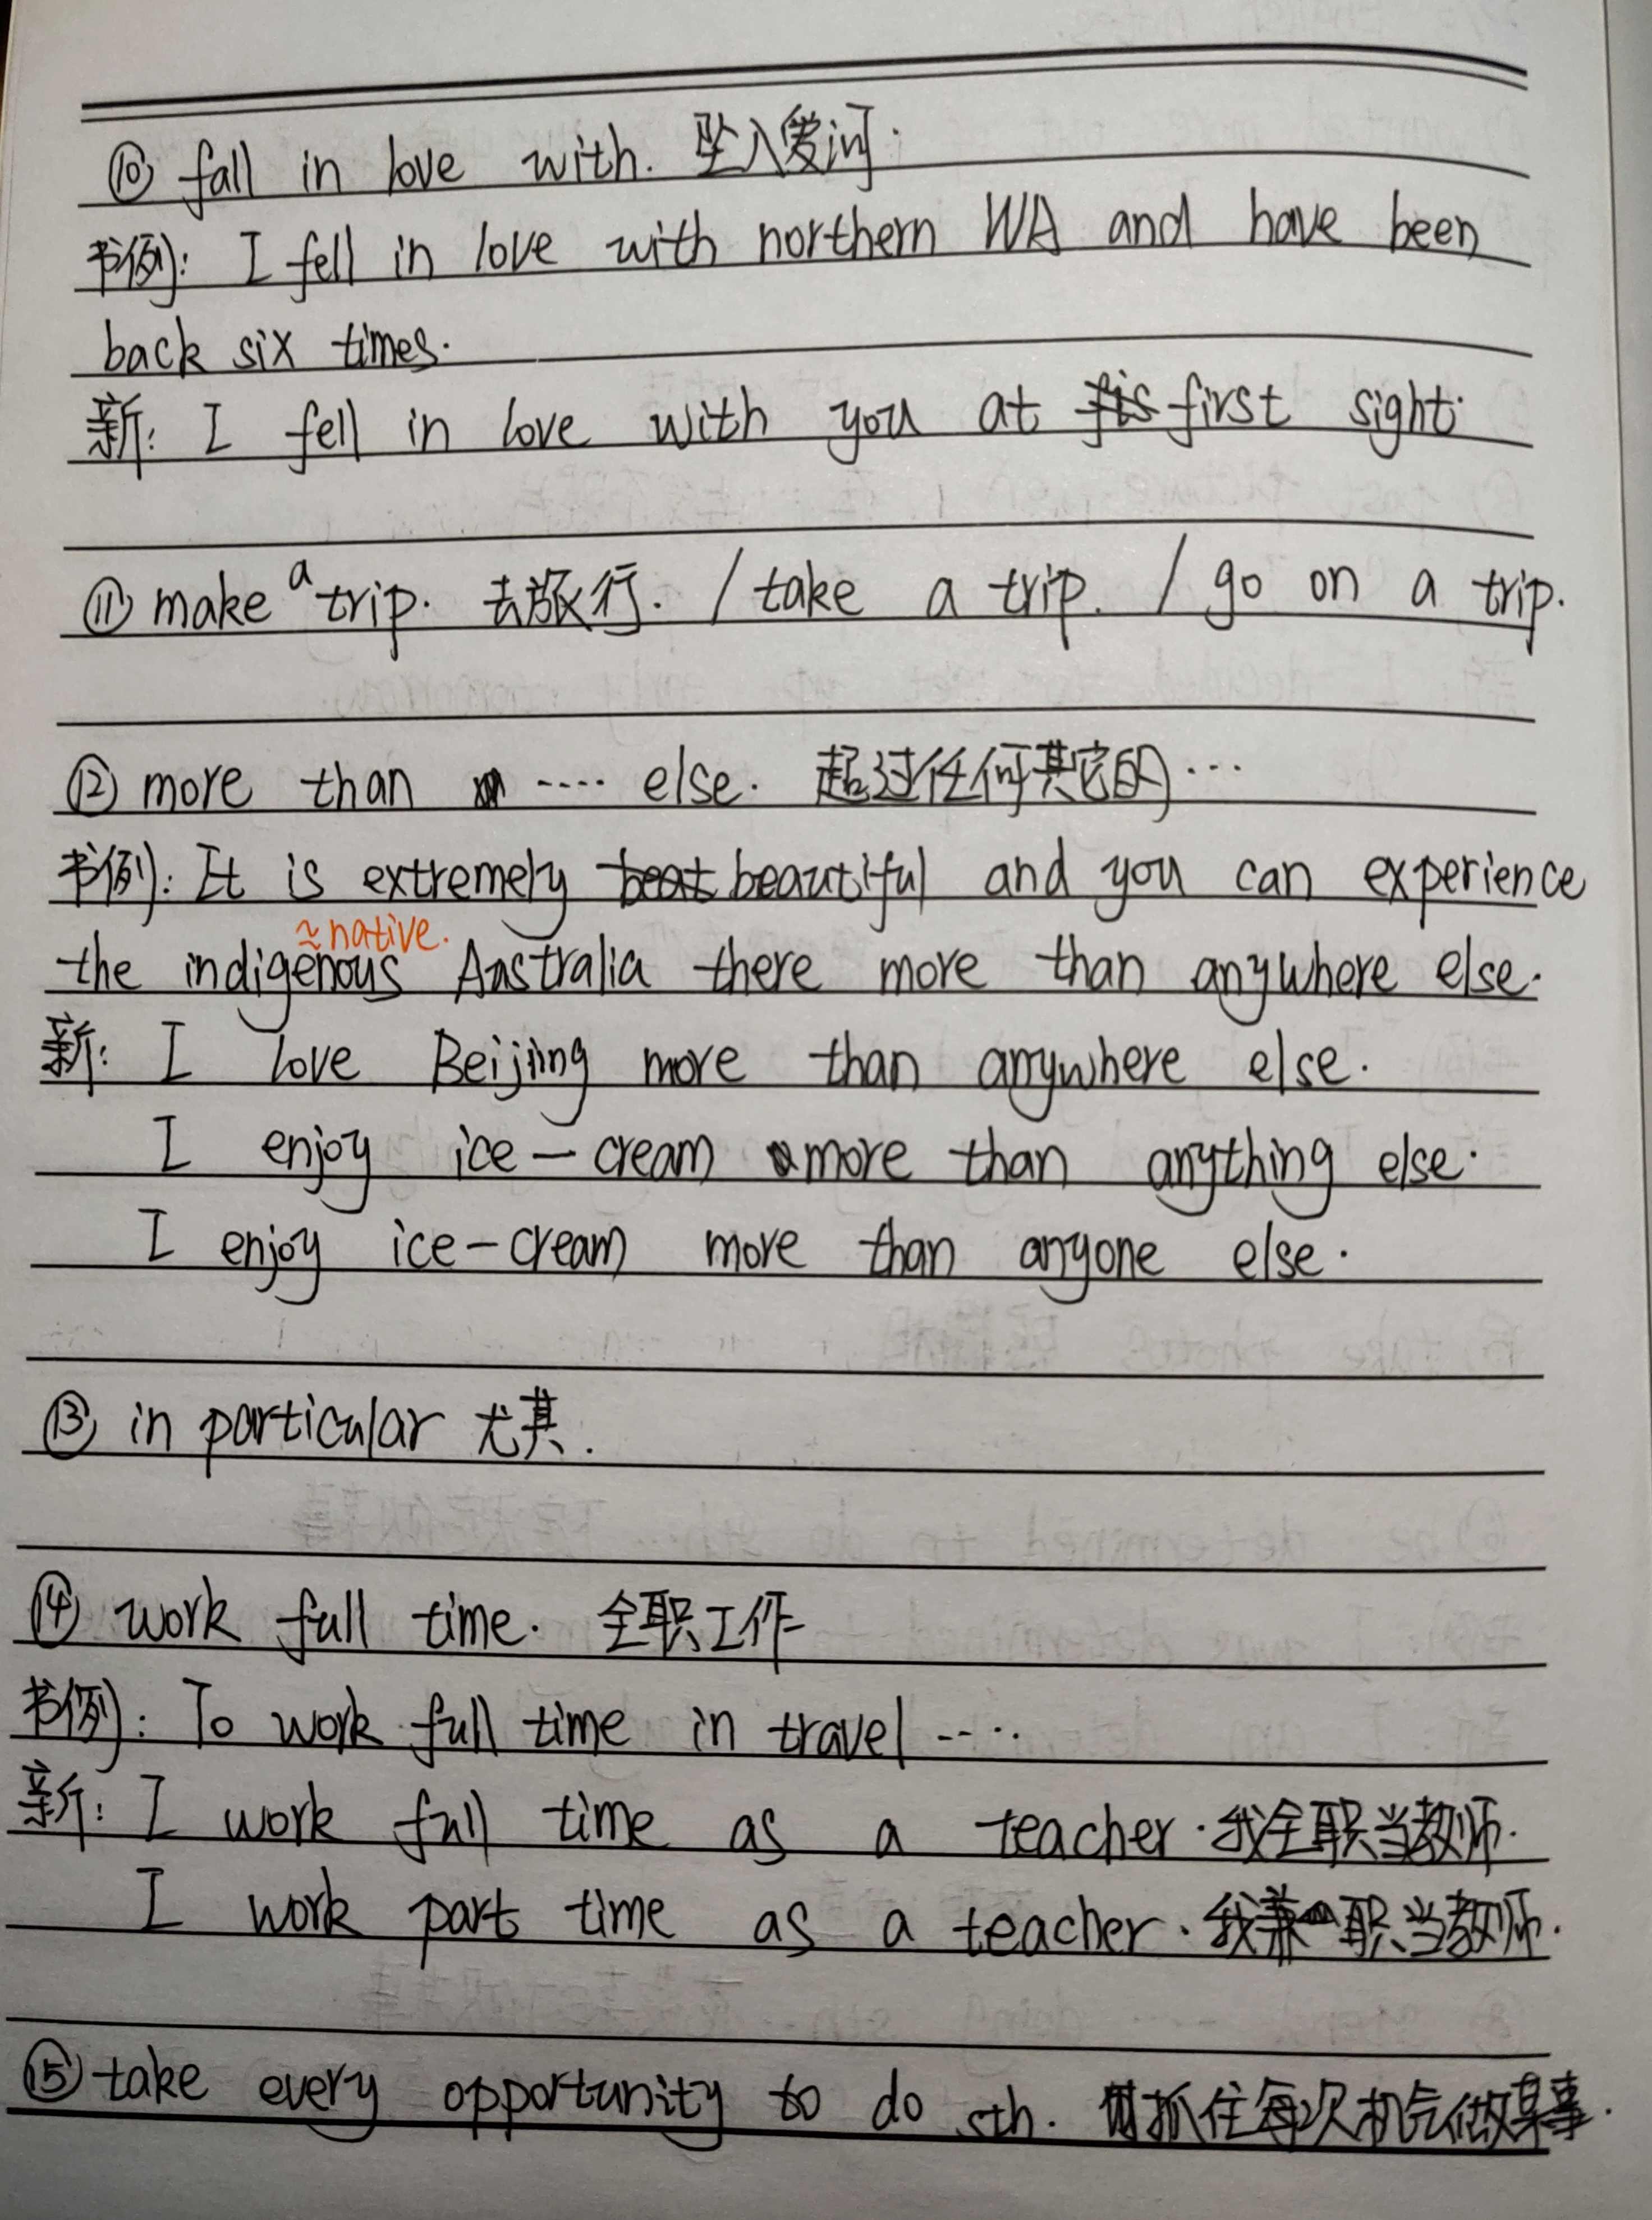 ⑩ fall in love with. 坠入爱河.
书例: I fell in love with northern WA and have been
back six times.
新: I fell in love with you at first sight.
⑪ make a trip. 去旅行. / take a trip. / go on a trip.
⑫ more than .... else. 超过任何其它的...
书例: It is extremely beautiful and you can experience
≈native.
the indigenous Australia there more than anywhere else.
新: I love Beijing more than anywhere else.
I enjoy ice-cream more than anything else.
I enjoy ice-cream more than anyone else.
⑬ in particular 尤其.
⑭ work full time. 全职工作
书例: To work full time in travel ....
新: I work full time as a teacher. 我全职当教师.
I work part time as a teacher. 我兼职当教师.
⑮ take every opportunity to do sth. 抓住每次机会做某事.